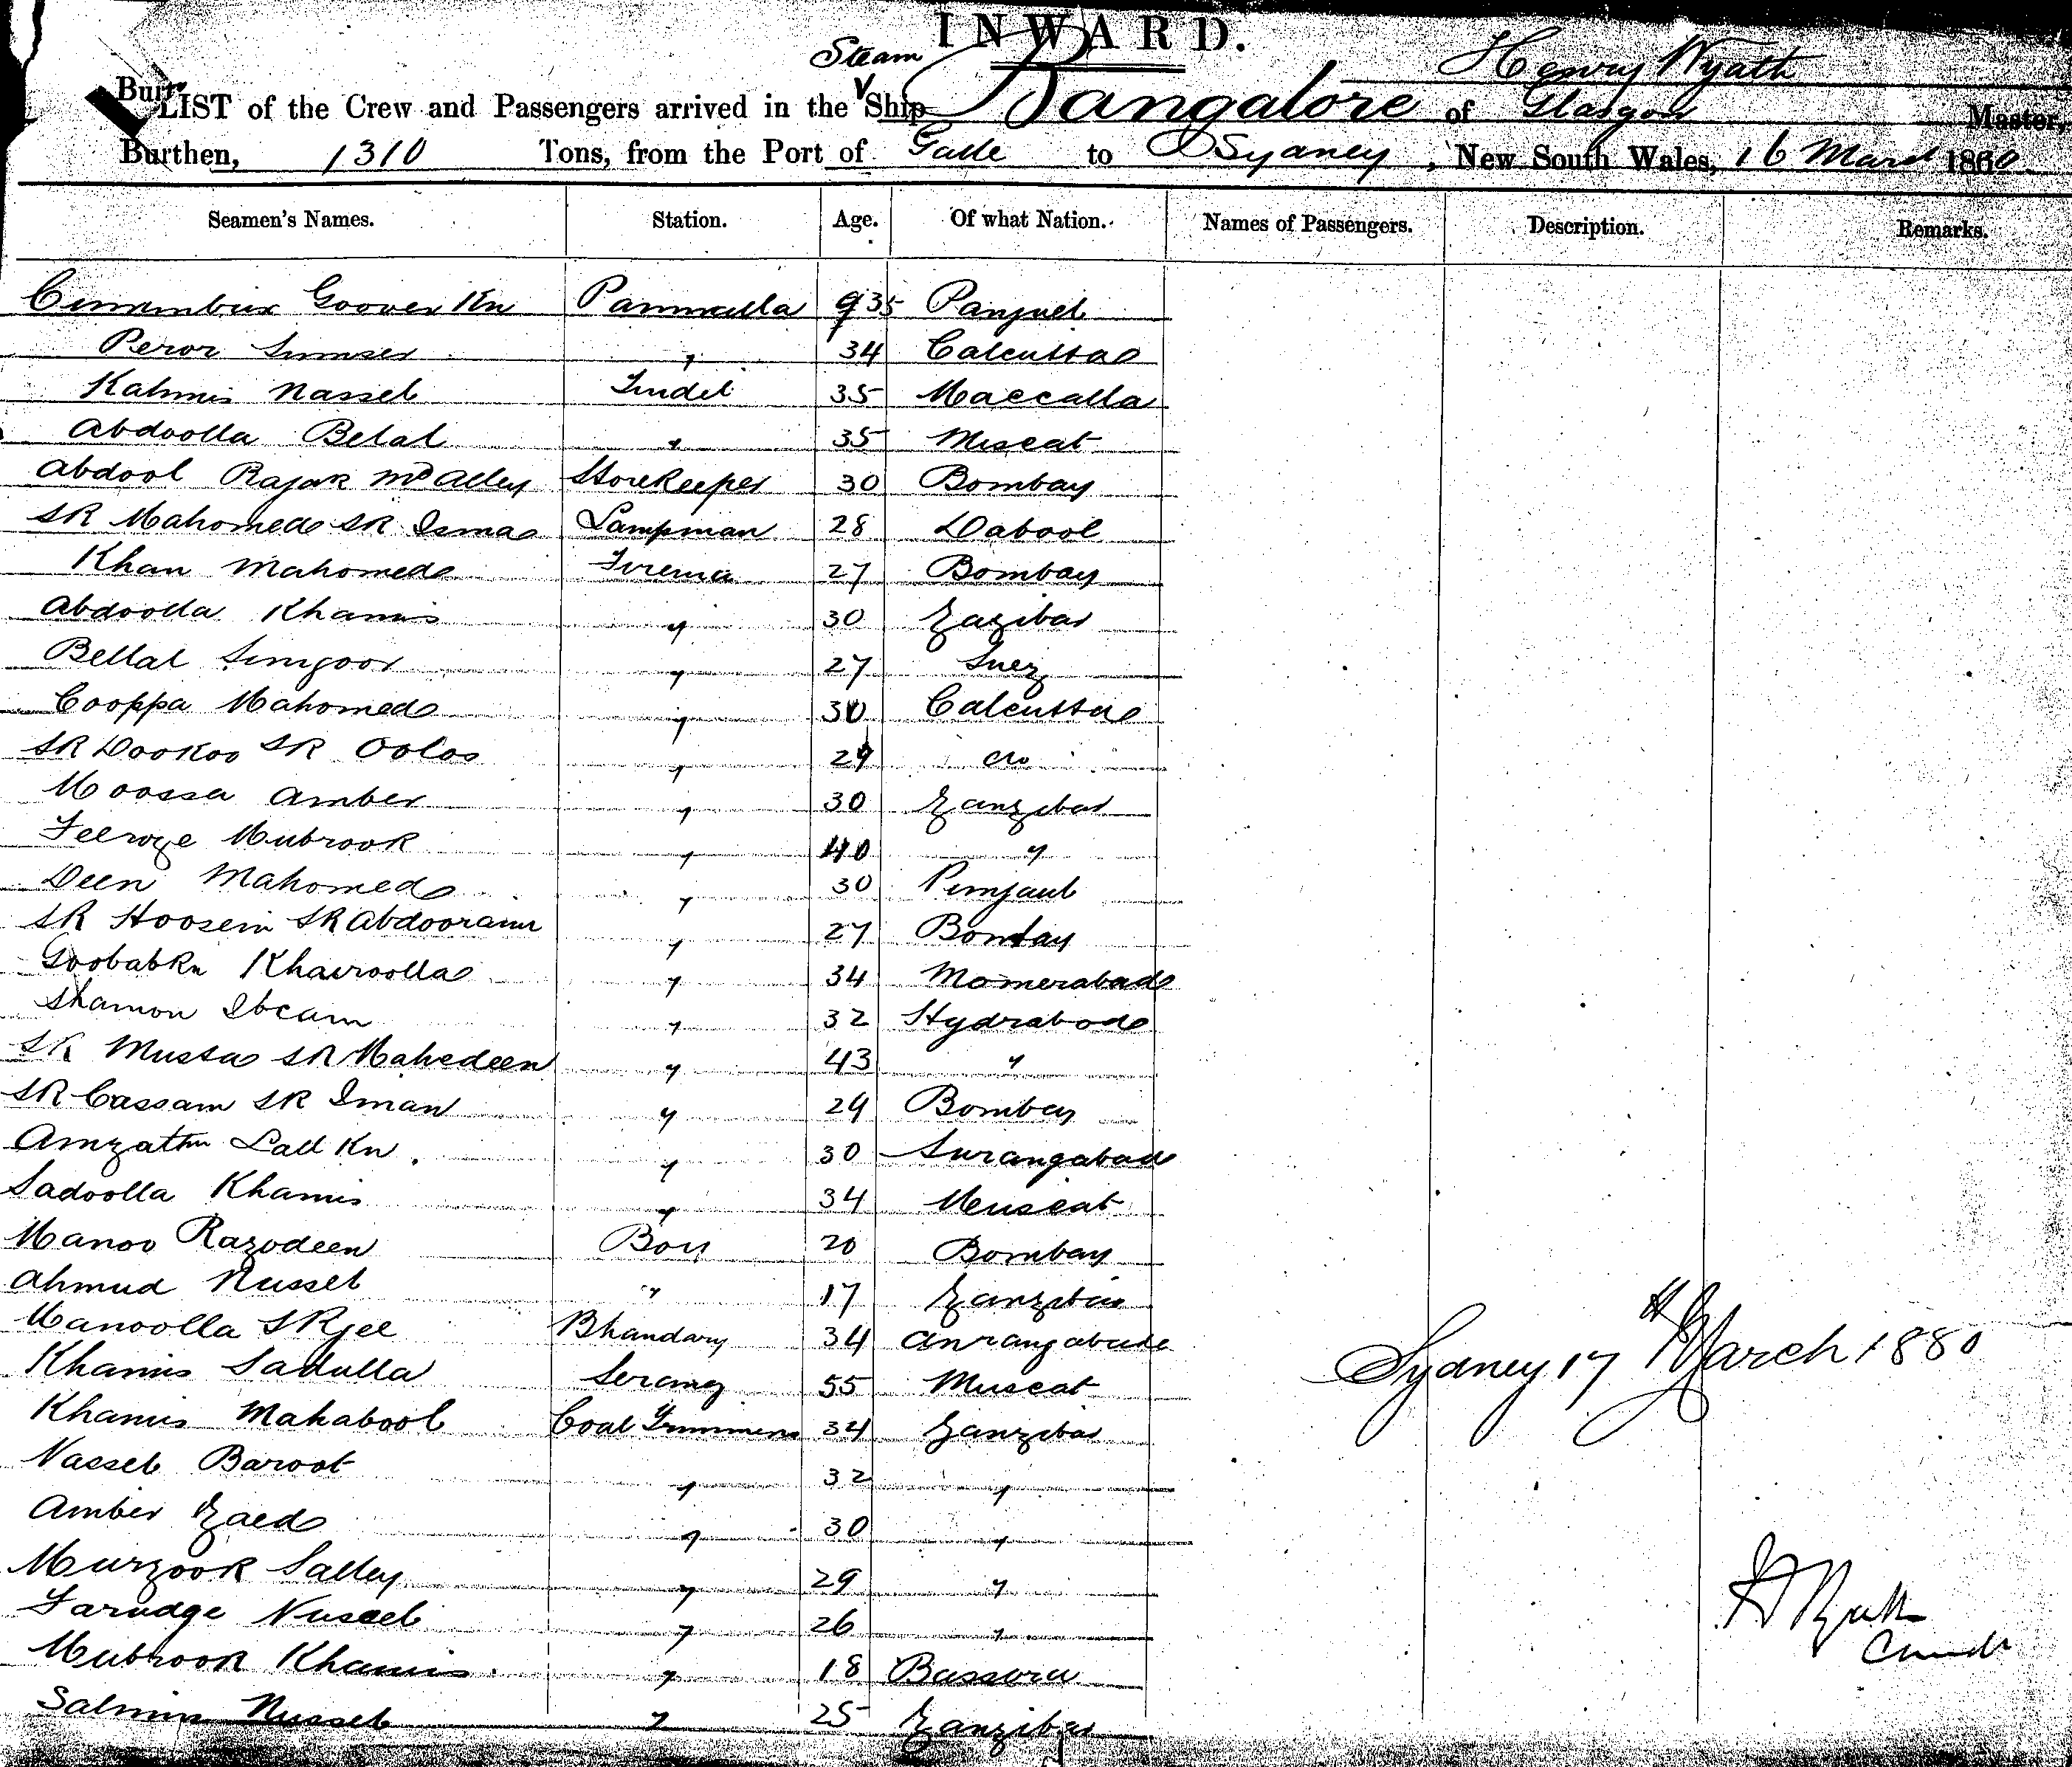 INWARD.
Steam
Henry Wyatt
LIST of the Crew and Passengers arrived in the Ship Bangalore of Glasgow Master,
Burthen, 1310 Tons, from the Port of Galle to Sydney, New South Wales, 16 March 1880
Seamen's Names. Station. Age. Of what Nation. Names of Passengers. Description. Remarks.
Goover Kn 35
Peror " 34 Calcutta
Kahmis Nasseb Tindel 35 Maccalla
Abdoolla Belal " 35 Muscat
Abdool Rajak Md Alley Storekeeper 30 Bombay
SK Mahomed SK Isma Lampman 28 Dabool
Khan Mahomed Firema 27 Bombay
Abdoolla Khamis " 30 Zazibar
Bellal " 27 Suez
Cooppa Mahomed " 30 Calcutta
SK Dookoo SK Ooloo " 29 do
Moossa Amber " 30 Zanzibar
Mubrook " 40 "
Deen Mahomed " 30 Punjaub
SK Hoosein SK " 27 Bombay
Khairoolla " 34 Momerabad
Shamon " 32 Hydrabad
SK Mussa SK Mahedeen " 43 "
SK Cassam SK Iman " 29 Bombay
Lall Kn " 30
Sadoolla Khamis " 34 Muscat
Manoo Razodeen Boy 20 Bombay
Ahmud Nusseb " 17 Zanzibar
Manoolla Bhandary 34
Khamis Sadulla Serang 55 Muscat
Khamis Mahabool Coal Trimmers 34 Zanzibar
Nasseb Baroot " 32 "
Amber Zaed " 30 "
Murzook Salley " 29 "
Farudge Nusseb " 26 "
Mubrook Khamis " 18 Bassora
Salmin Nusseb " 25 Zanzibar
Sydney 17th March 1880
H Wyatt